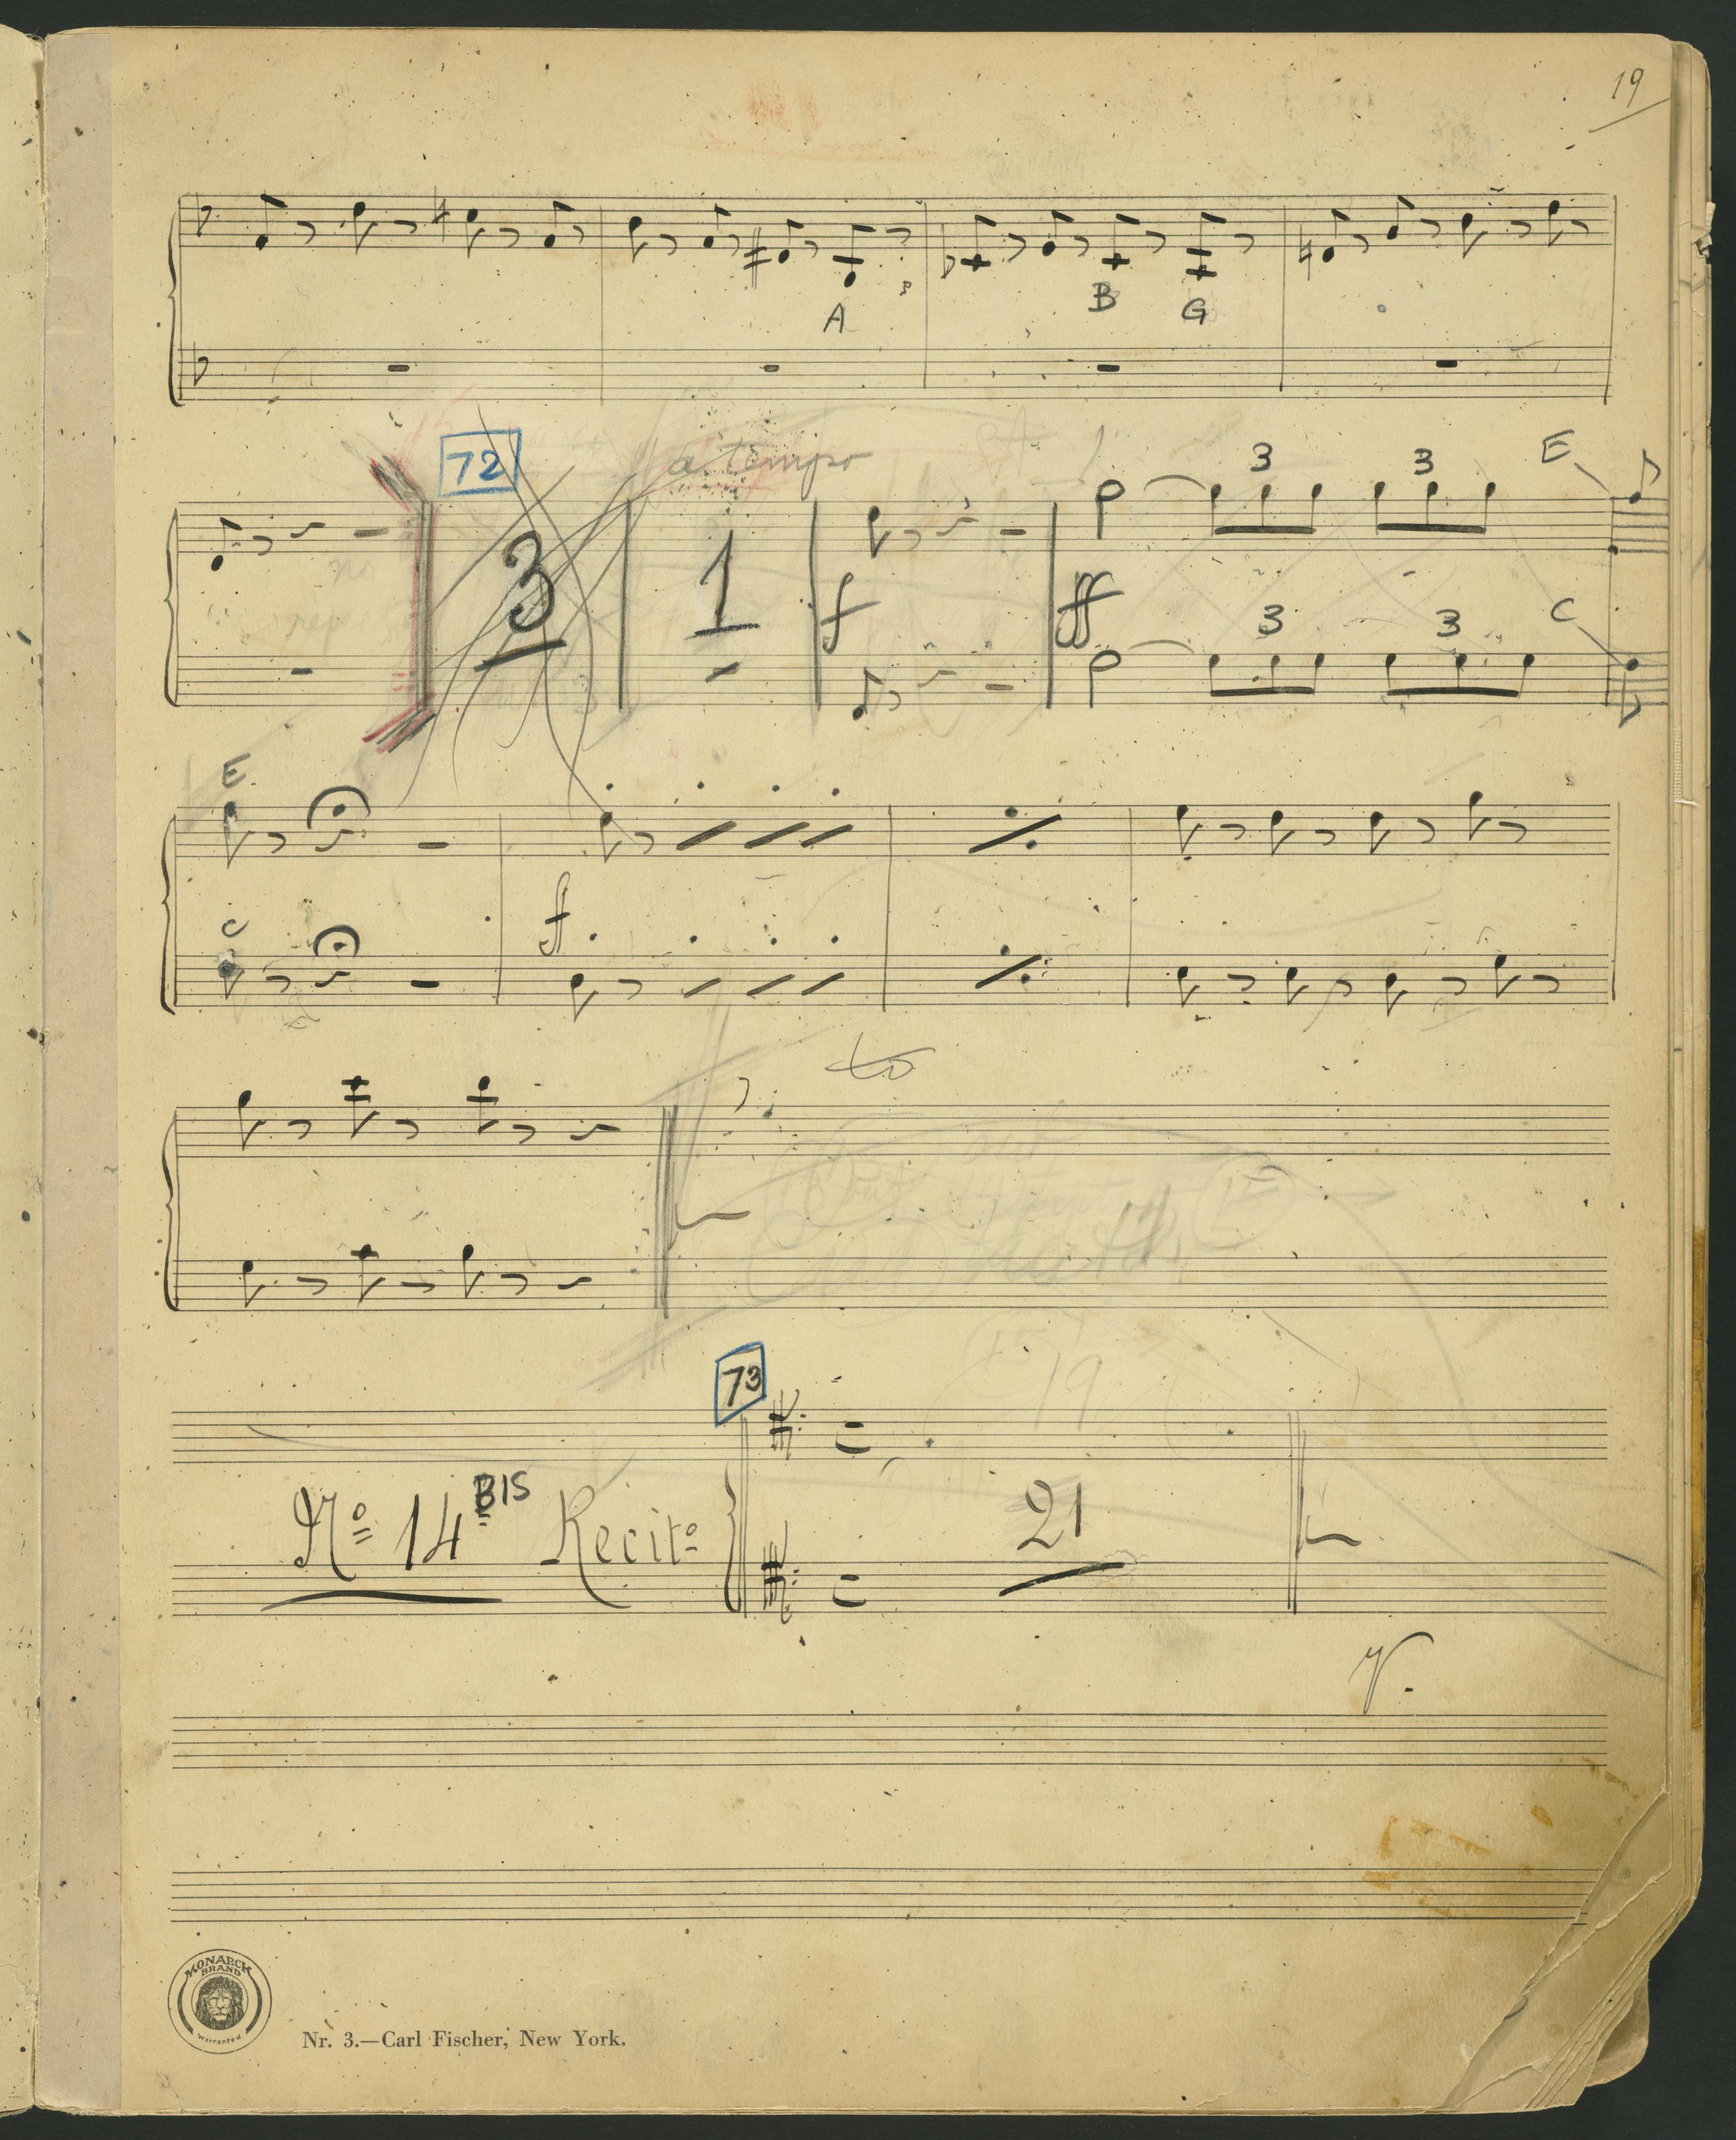 19
A B G
72 a tempo 3 3 E
3 1 f ff
3 3 C
E
C f
to
73
19
Nº 14 BIS Recitº 21
V.
MONARCH
BRAND
Warranted
Nr. 3.—Carl Fischer, New York.